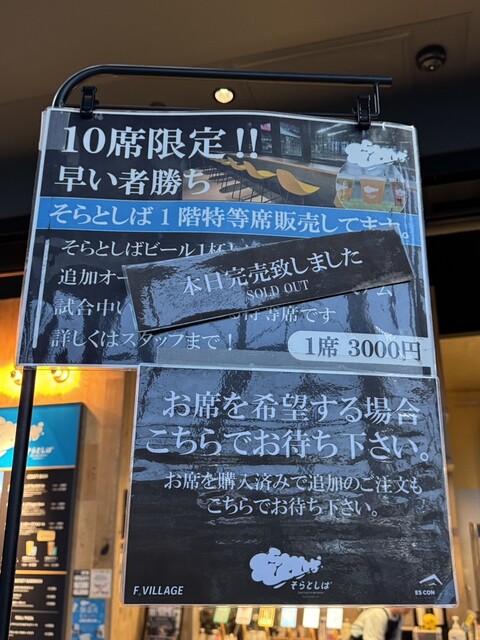 10席限定!!
早い者勝ち
そらとしば1階特等席販売してます。
そらとしばビール1杯
追加オー
本日完売致しました
SOLD OUT
試合中い
特等席です
詳しくはスタッフまで!
1席 3000円
お席を希望する場合
こちらでお待ち下さい。
お席を購入済みで追加のご注文も
こちらでお待ち下さい。
そらとしば
F.VILLAGE
ES CON